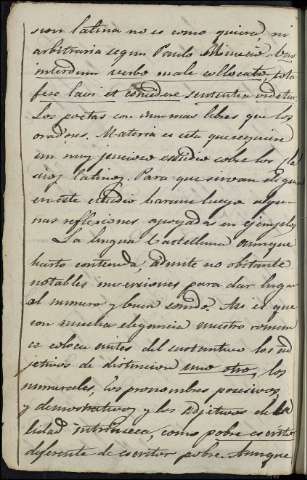 cion latina no es como quiera, ni
arbitraria segun Paulo Minucio. Uno
interdum verbo male collocato, tota
fere laus et
Los poetas son aun mas libres que los
oradores. Materia es esta que requiere
un muy juicioso estudio sobre los clá
sicos latinos. Para que sirvan de guia
en este estudio haremos luego algu-
nas reflexiones apoyadas en ejemplos
La lengua Castellana aunque
harto contenida, admite no obstante
notables inversiones para dar lugar
al número y buen sonido. Asi es que
con mucha elegancia nuestro romance
coloca antes del sustantivo los ad
jetivos de distincion uno otro, los
numerales, los pronombres posesivos,
y demostrativos, y los adjetivos de ca
lidad intrinseca, como pobre escritor
diferente de escritor pobre. Aunque